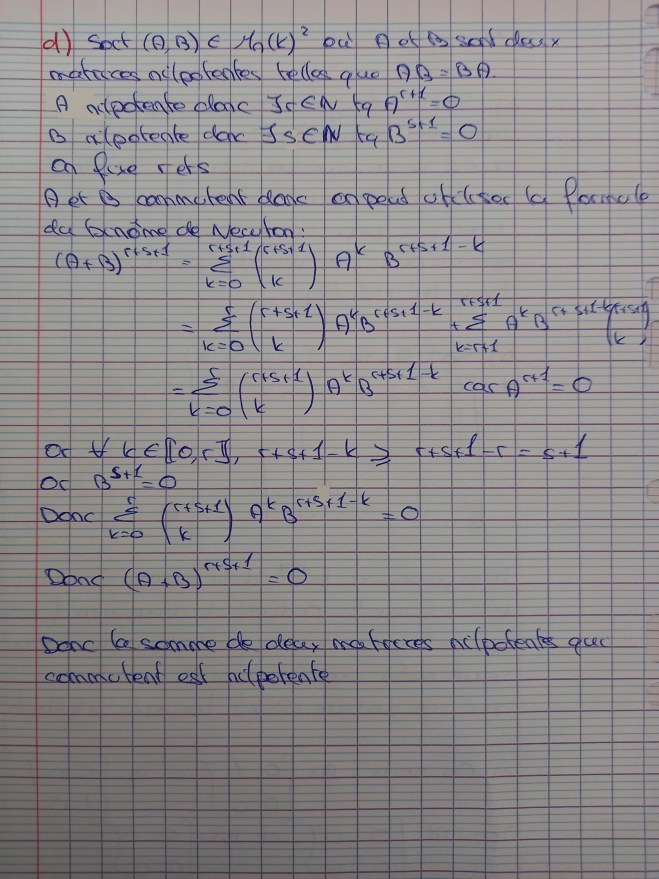 d) Soit (A,B) ∈ Mn(K)² où A et B sont deux
matrices nilpotentes telles que AB = BA.
A nilpotente donc ∃r∈ℕ tq A^{r+1} = 0
B nilpotente donc ∃s∈ℕ tq B^{s+1} = 0
On fixe r et s
A et B commutent donc on peut utiliser la formule
du binôme de Newton :
(A+B)^{r+s+1} = Σ_{k=0}^{r+s+1} (r+s+1 k) A^k B^{r+s+1-k}
= Σ_{k=0}^{r} (r+s+1 k) A^k B^{r+s+1-k} + Σ_{k=r+1}^{r+s+1} A^k B^{r+s+1-k} (r+s+1 k)
= Σ_{k=0}^{r} (r+s+1 k) A^k B^{r+s+1-k} car A^{r+1} = 0
Or ∀ k ∈ ⟦0,r⟧, r+s+1-k ⩾ r+s+1-r = s+1
Or B^{s+1} = 0
Donc Σ_{k=0}^{r} (r+s+1 k) A^k B^{r+s+1-k} = 0
Donc (A+B)^{r+s+1} = 0
Donc la somme de deux matrices nilpotentes qui
commutent est nilpotente